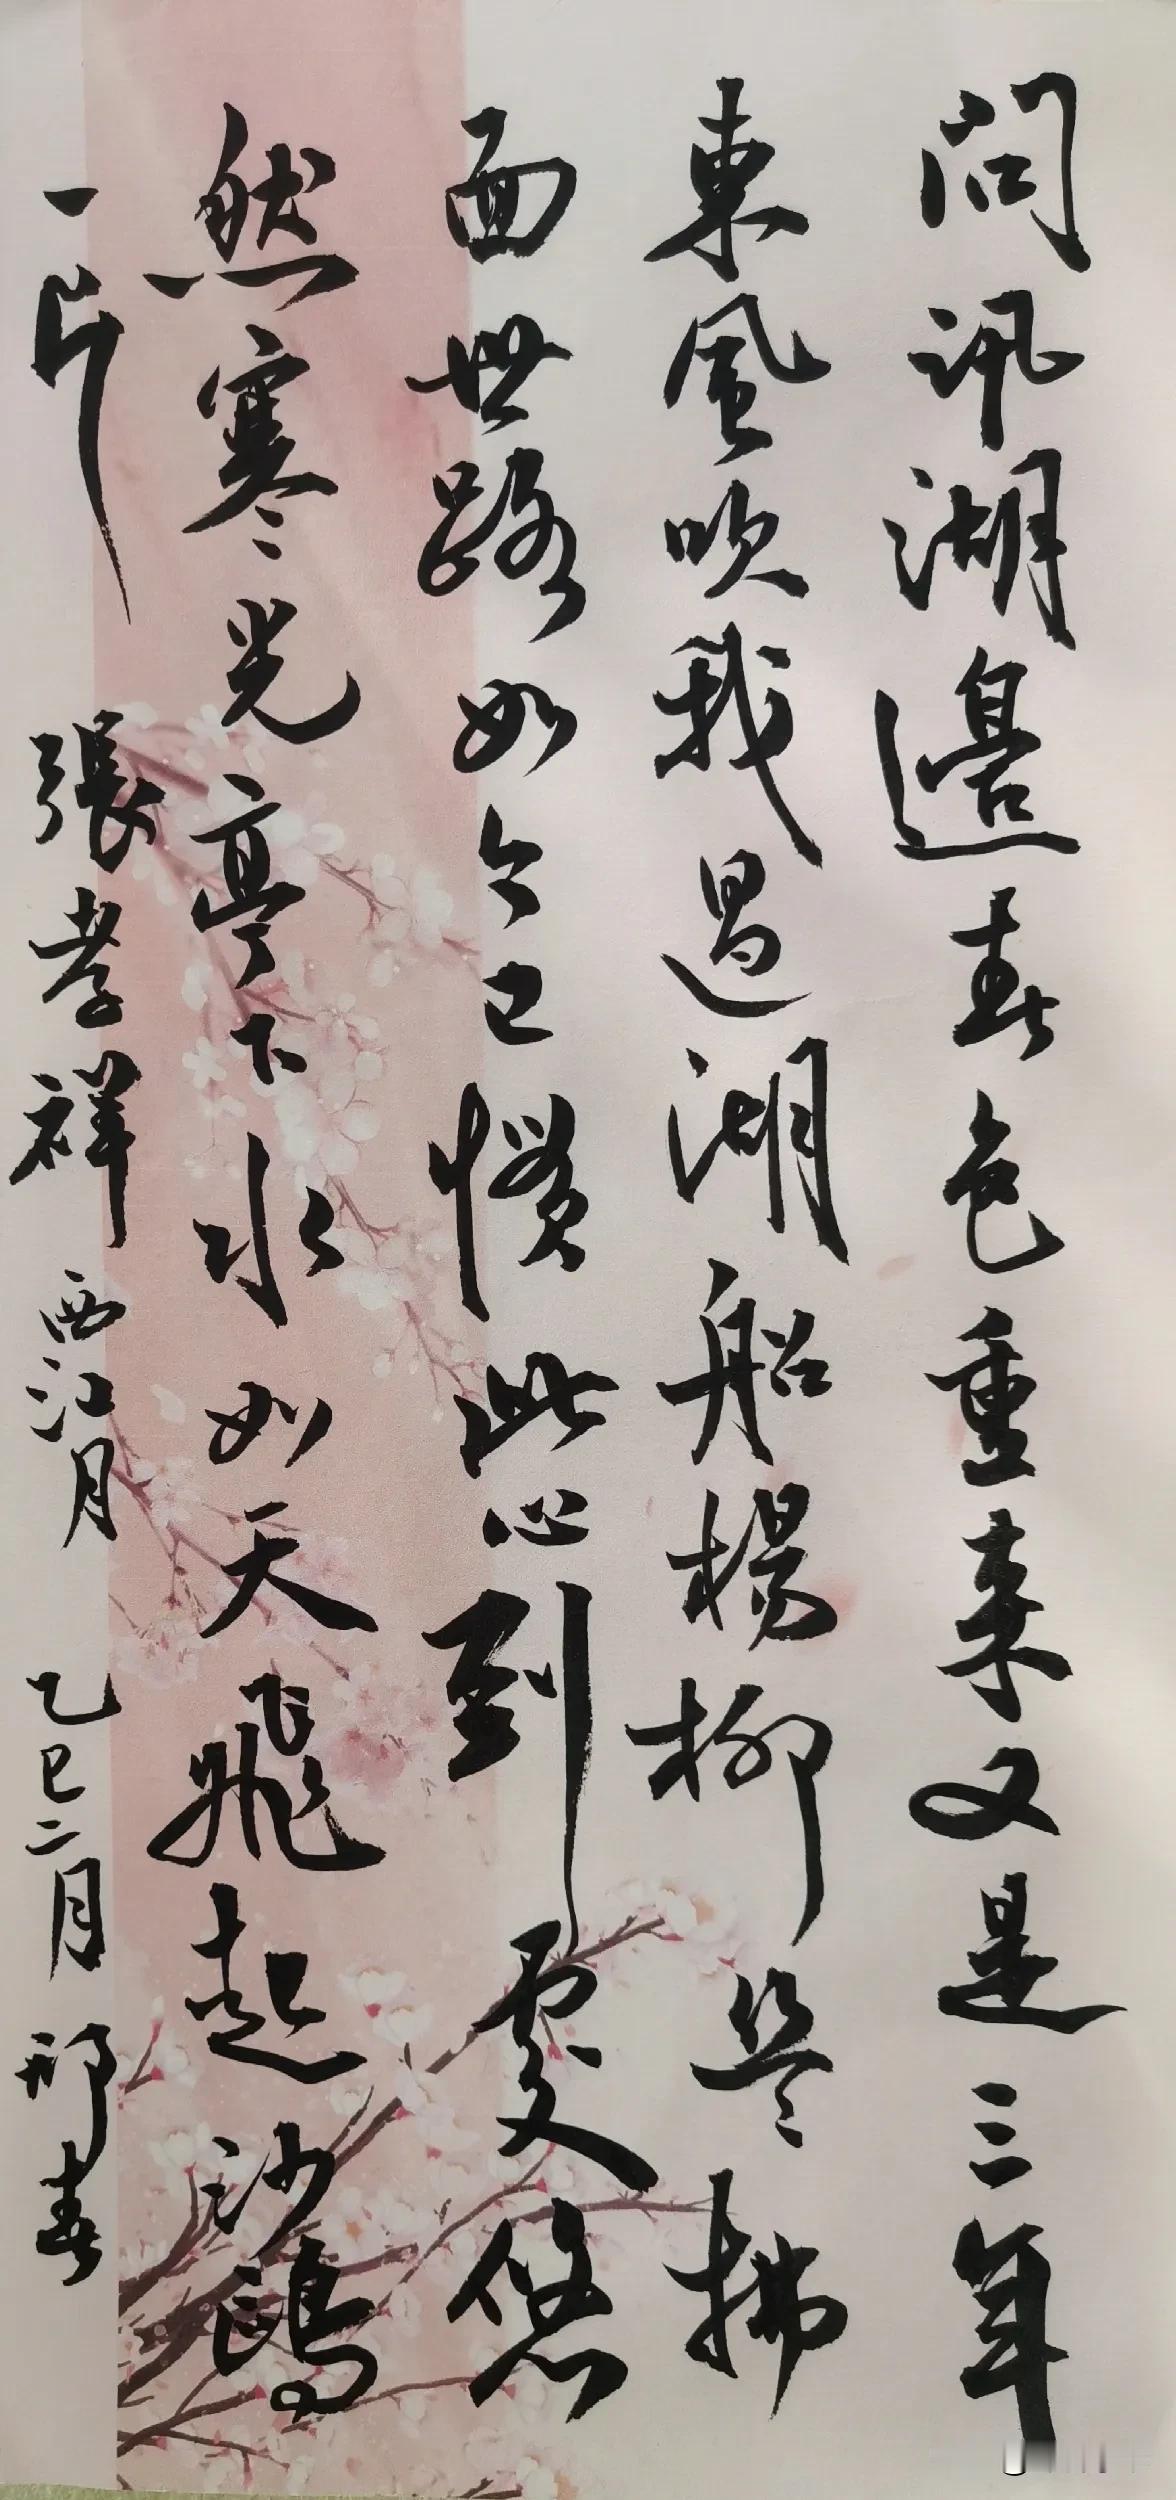 问讯湖邊春色重来又是三年
東風吹我過湖船楊柳丝丝拂
面世路如今已惯此心到處悠
然寒光亭下水如天飛起沙鷗
一片
張孝祥 西江月 乙巳二月 邢春